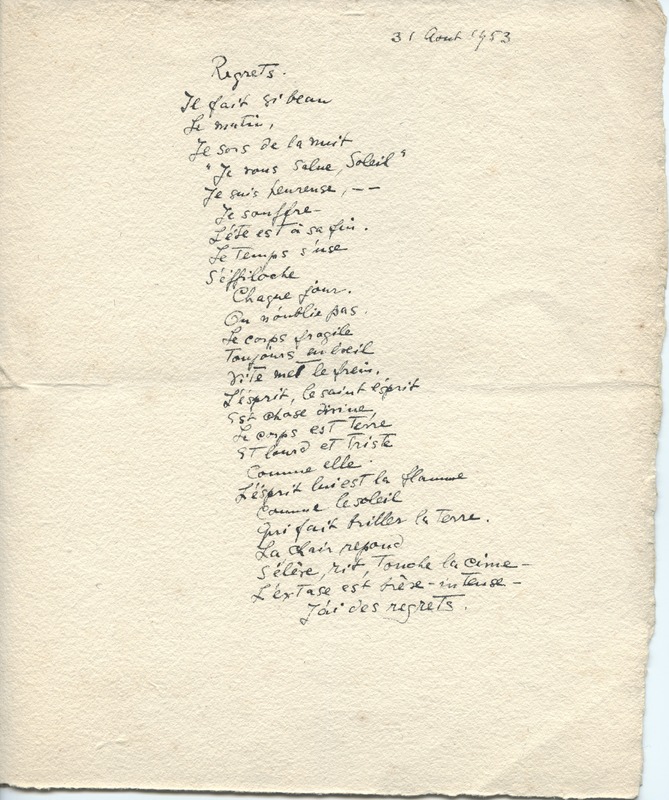 31 Aout 1953
Regrets.
Il fait si beau
Le matin,
Je sors de la nuit
"Je vous salue, Soleil"
Je suis heureuse, --
Je souffre-
L'été est à sa fin.
Le Temps s'use
S'éffiloche
Chaque jour.
On n'oublie pas.
Le corps fragile
Toujours en éveil
Vite met le frein.
L'ésprit, le saint ésprit
Est chose divine,
Le corps est Terre
Et lourd et Triste
Comme elle.
L'ésprit lui est la flamme
Comme le soleil
Qui fait briller la terre.
La chair répond
S'élève, rit, Touche la cime-
L'exTase est brève-intense-
J'ai des regrets.